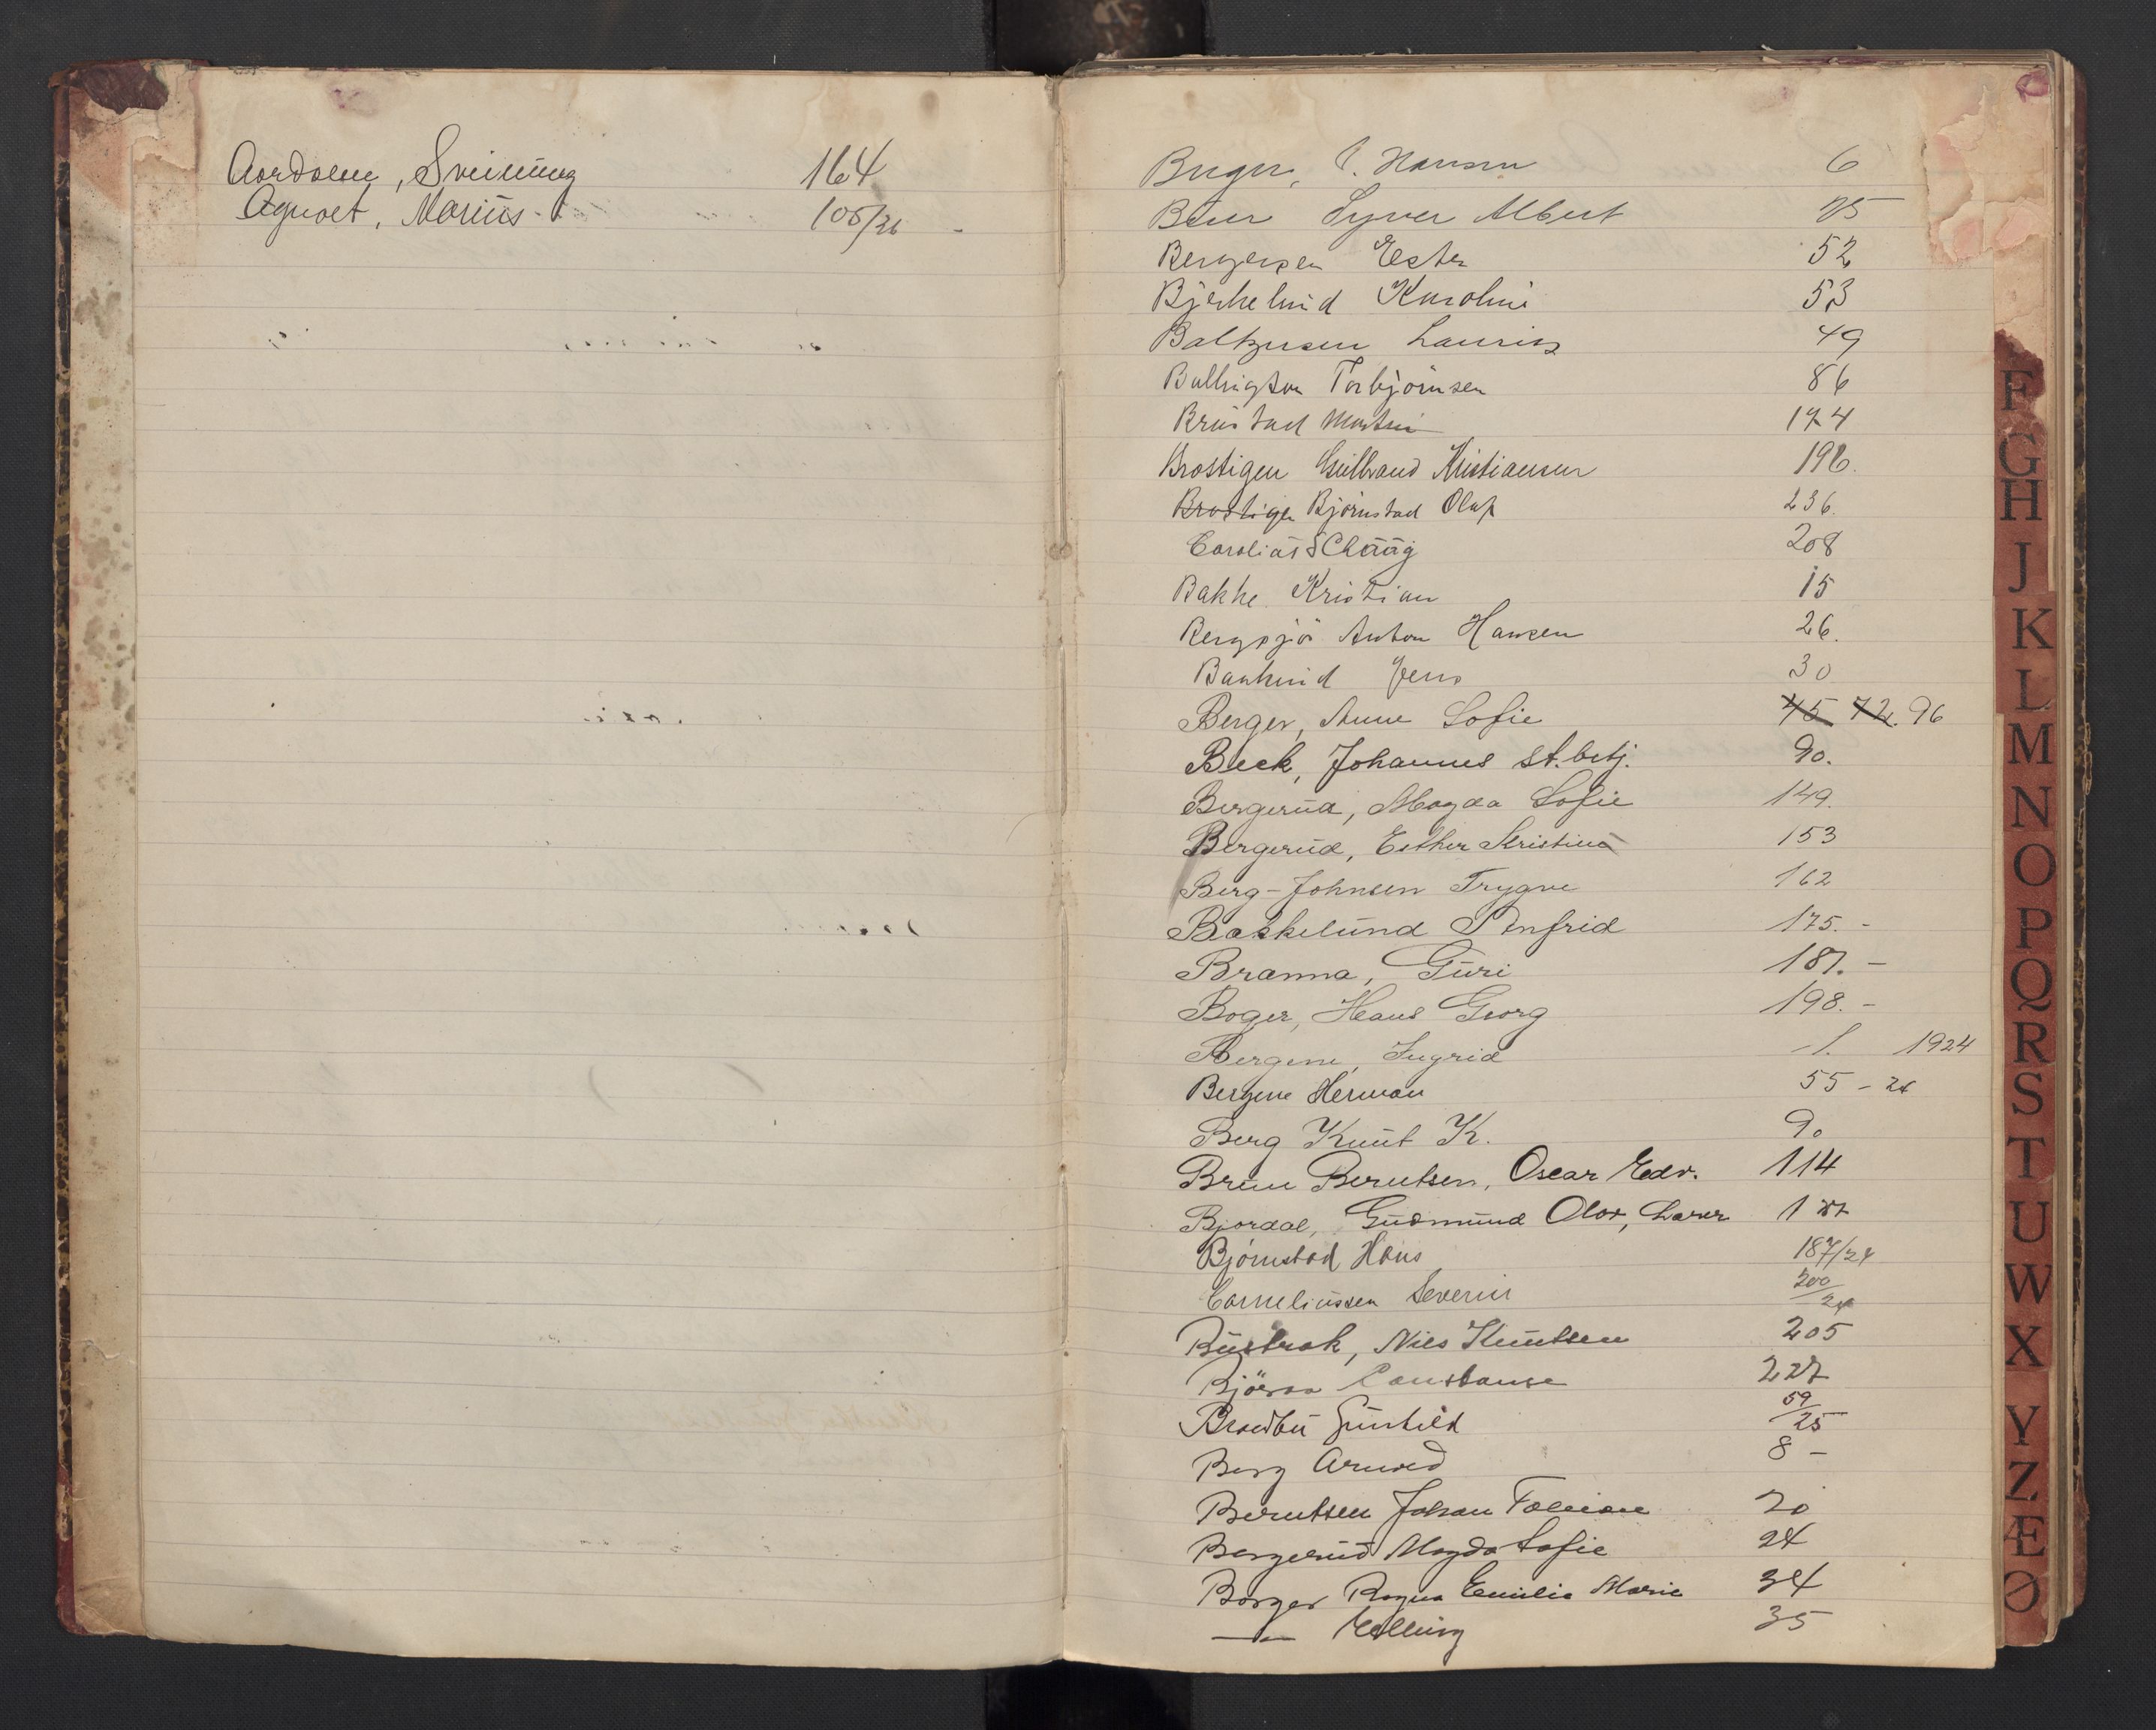 Aardalen, Sveinung 164
Agnoet, Marius 105/26
Berger, J. Hansen 6
Beier Syver Albert 25
Bergersen Ester 52
Bjerkelund Karoline 53
Baltzersen Lauritz 49
Torbjørnsen 86
Brustad Martin 174
Brostigen Gulbrand Kristiansen 196.
Brostigen Bjørnstad Olaf 236.
208
Bakke Kristian 15
Bergsjø Anton Hansen 26.
Jens 30
Berger, Anne Sofie 45 72. 96
Beck, Johannes st.betj. 90.
Bergerud, Magda Sofie 149.
Bergerud, Esther Kristine 153
Berg-Johnsen Trygve 162
Bakkelund 175. -
Branna, Guri 187. -
Boger, Hans Georg 198. -
Bergene, Ingrid 1. 1924
Bergene Herman 55 - 24
Berg Knut K. 90
Brun Berntsen, Oscar Edv. 114
Bjordal, Gudmund Olav, Lærer
Bjørnstad Hans 187/24
Corneliussen Severin 200/24
Bustrak, Nils Knutsen 205
Bjøraa Constanse 227
Brendbu Gunhild 59/25
Berg Arnved 8 -
Berntsen Johan 20
Bergerud Magda Sofie 24
Borger Ragna Emilie Marie 34
—"— Erling 35
F
G
H
J
K
L
M
N
O
P
Q
R
S
T
U
W
X
Y
Z
Æ
Ø